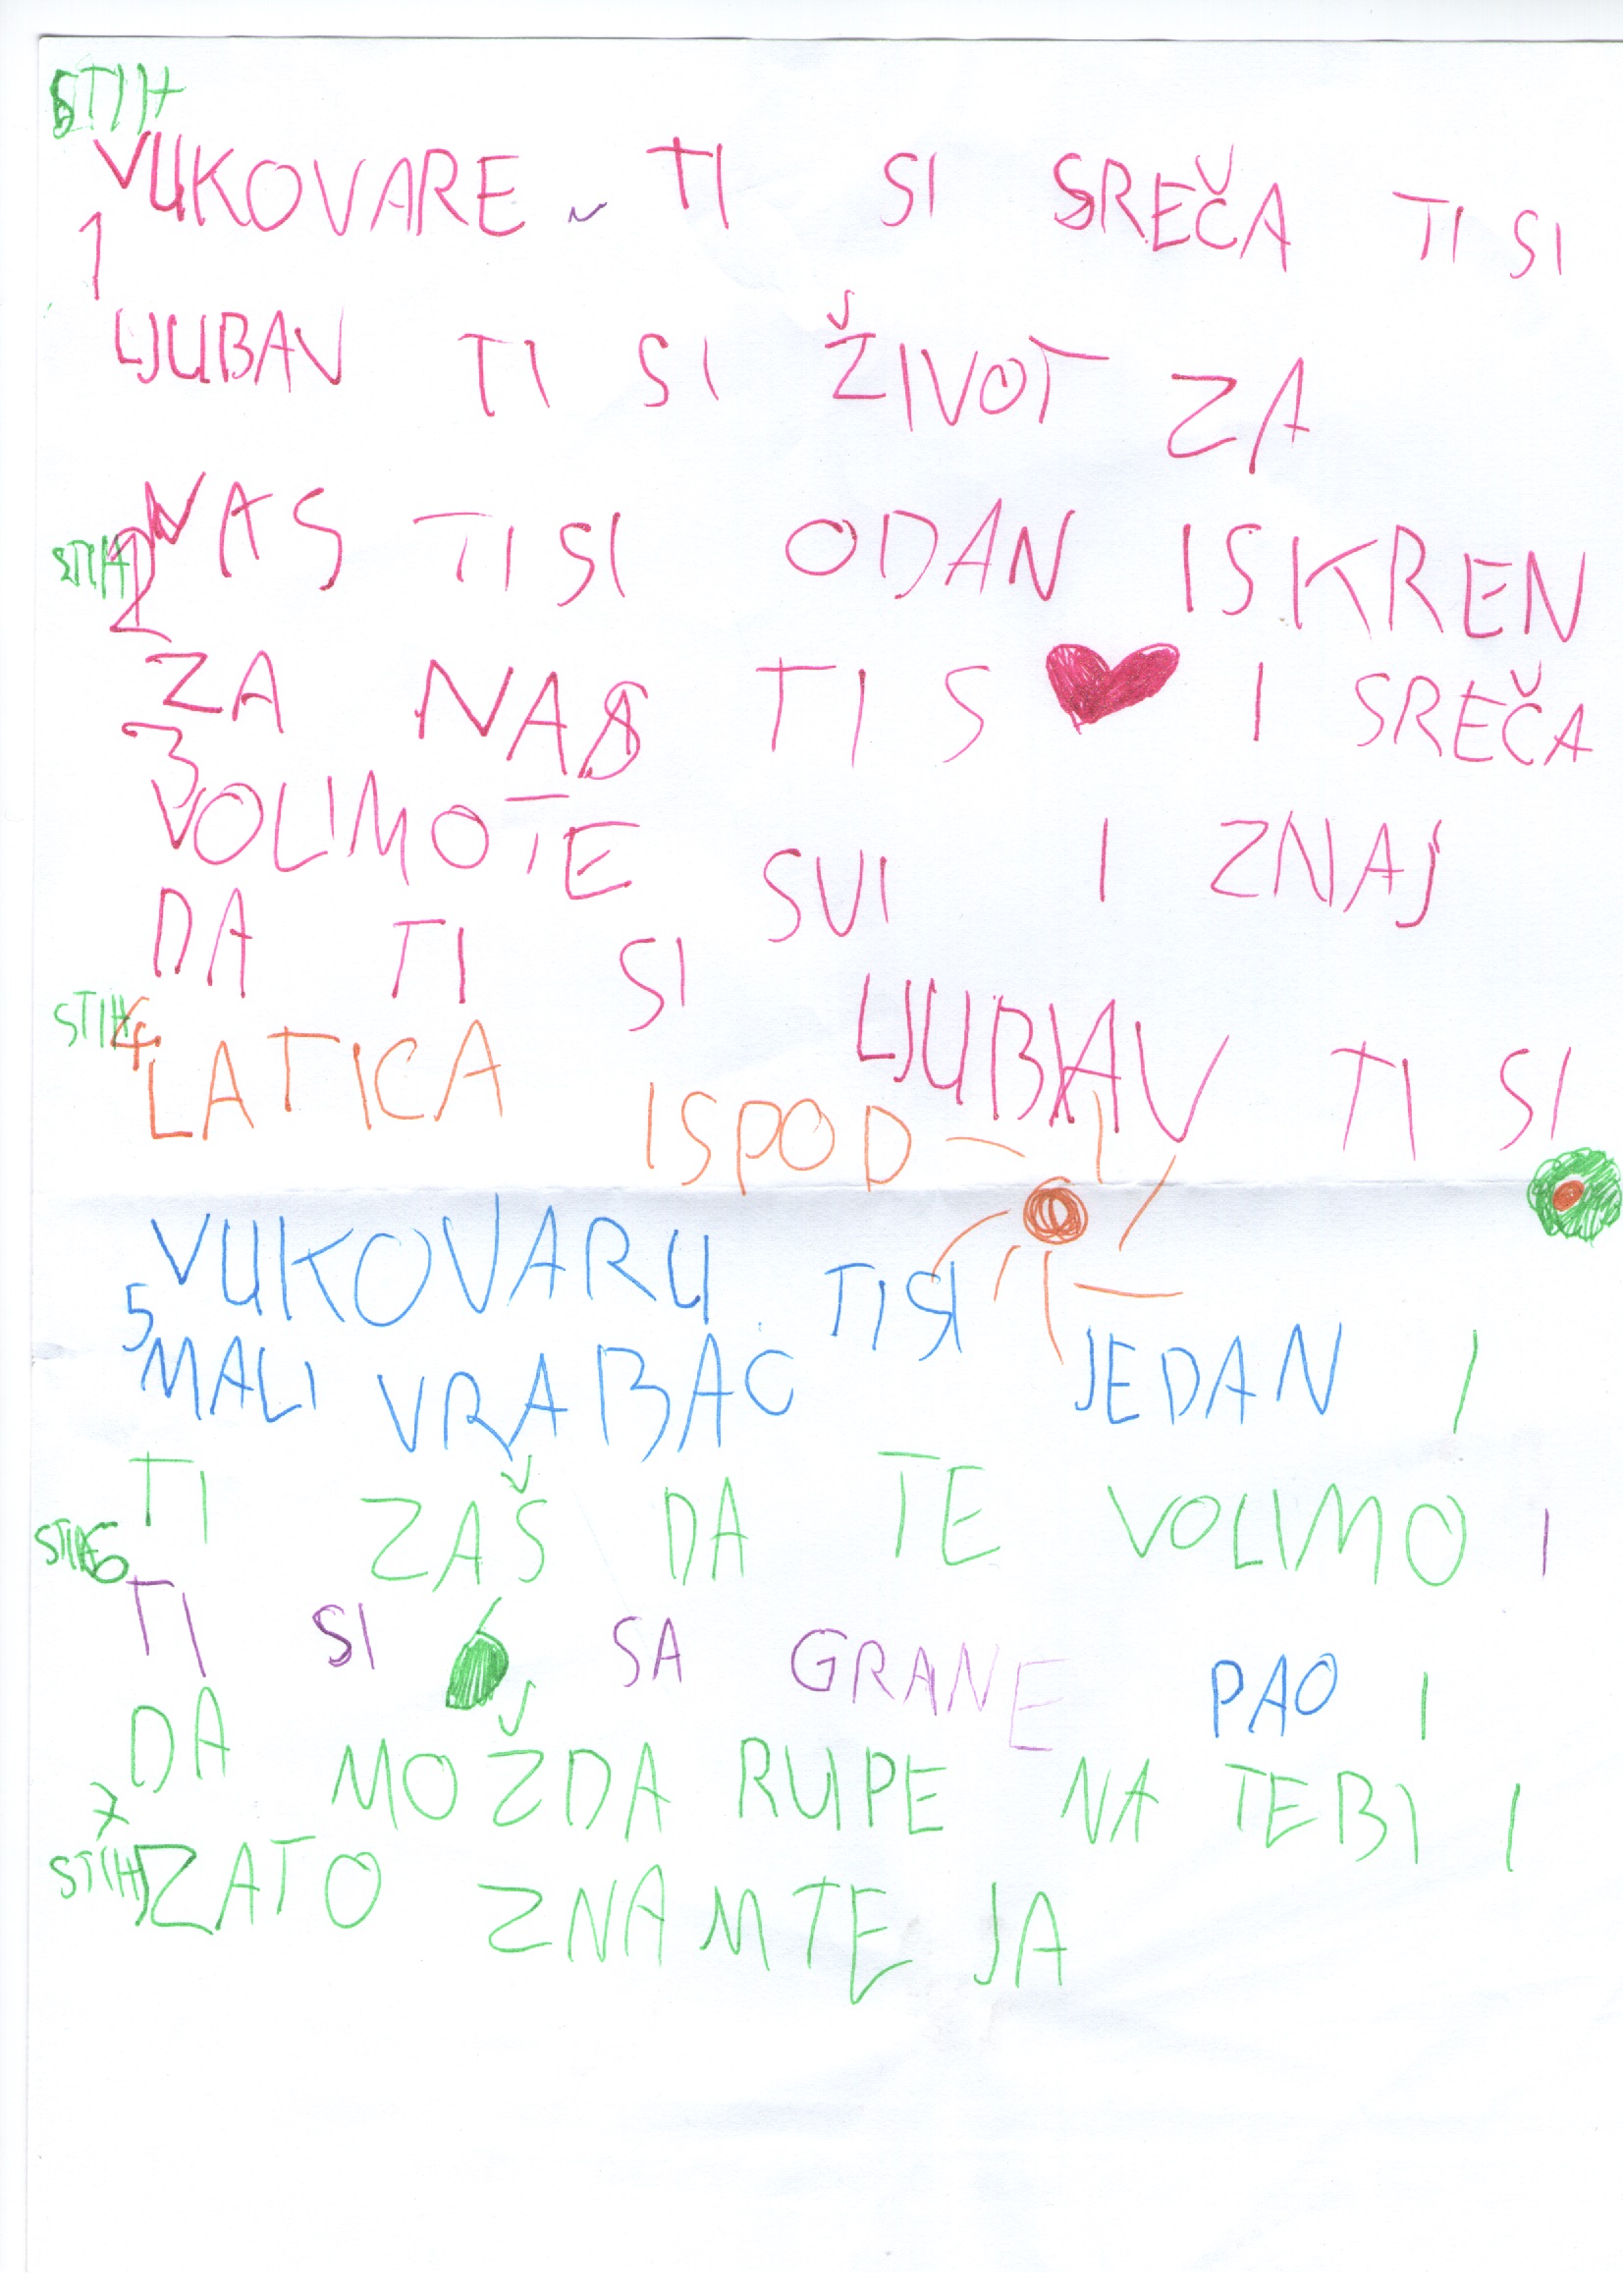 STIH
VUKOVARE TI SI SREČA TI SI
1
LJUBAV TI SI ŽIVOT ZA
NAS TI SI ODAN ISKREN
STIH 2
ZA NAS TI S I SREČA
3
VOLIMOTE SVI I ZNAJ
DA TI SI LJUBAV TI SI
STIH 4
LATICA ISPOD
VUKOVARU TI SI
5
MALI VRABAC JEDAN I
TI ZAŠ DA TE VOLIMO I
STIH 6
TI SI SA GRANE PAO I
DA MOŽDA RUPE NA TEBI I
7
STIH ZATO ZNAMTE JA